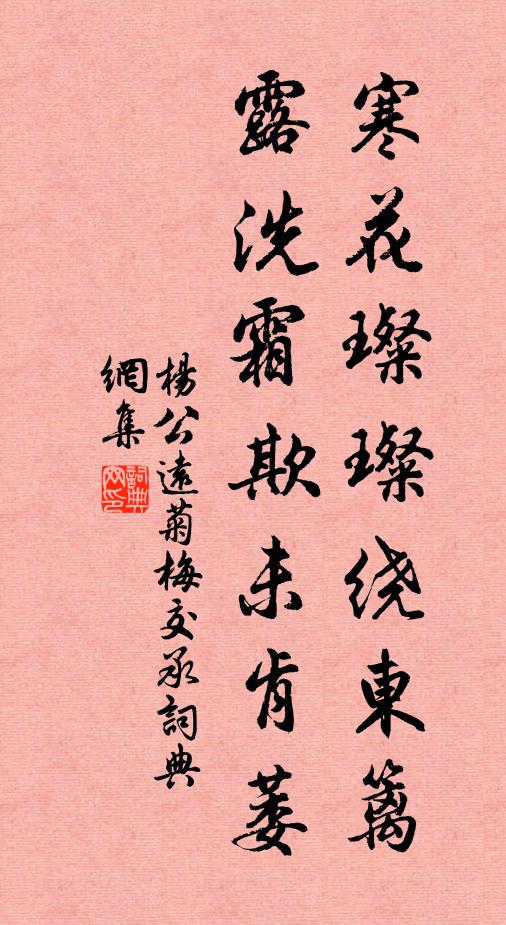 寒花璨璨绕東篱
露洗霜欺未肯萎
楊公遠菊梅交承詞典
網集
詞典
网印